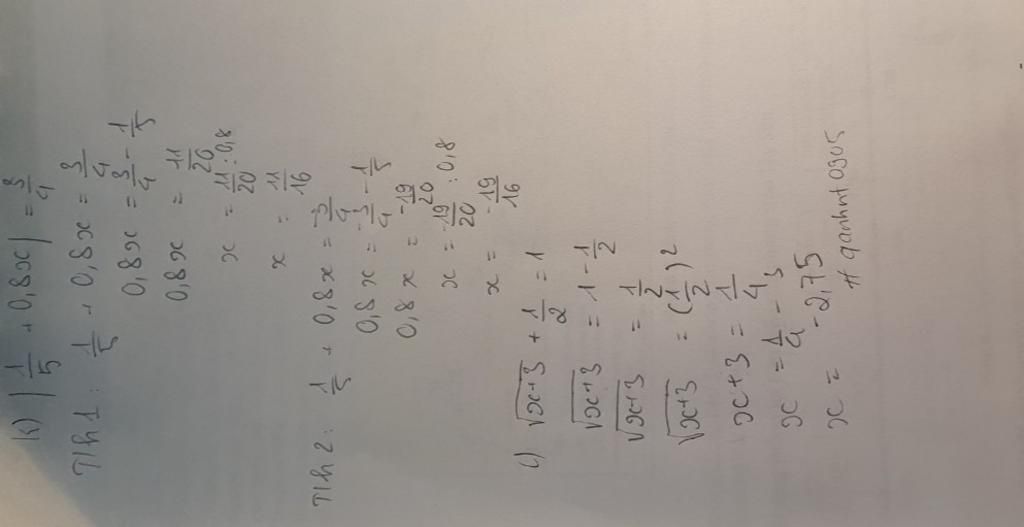 k) |1/5 + 0,8x| = 3/4
T/h 1: 1/5 + 0,8x = 3/4
0,8x = 3/4 - 1/5
0,8x = 11/20
x = 11/20 : 0,8
x = 11/16
T/h 2: 1/5 + 0,8x = -3/4
0,8x = -3/4 - 1/5
0,8x = -19/20
x = -19/20 : 0,8
x = -19/16
c) √x+3 + 1/2 = 1
√x+3 = 1 - 1/2
√x+3 = 1/2
√x+3 = (1/2)²
x+3 = 1/4
x = 1/4 - 3
x = -2,75
# qanhnt0905